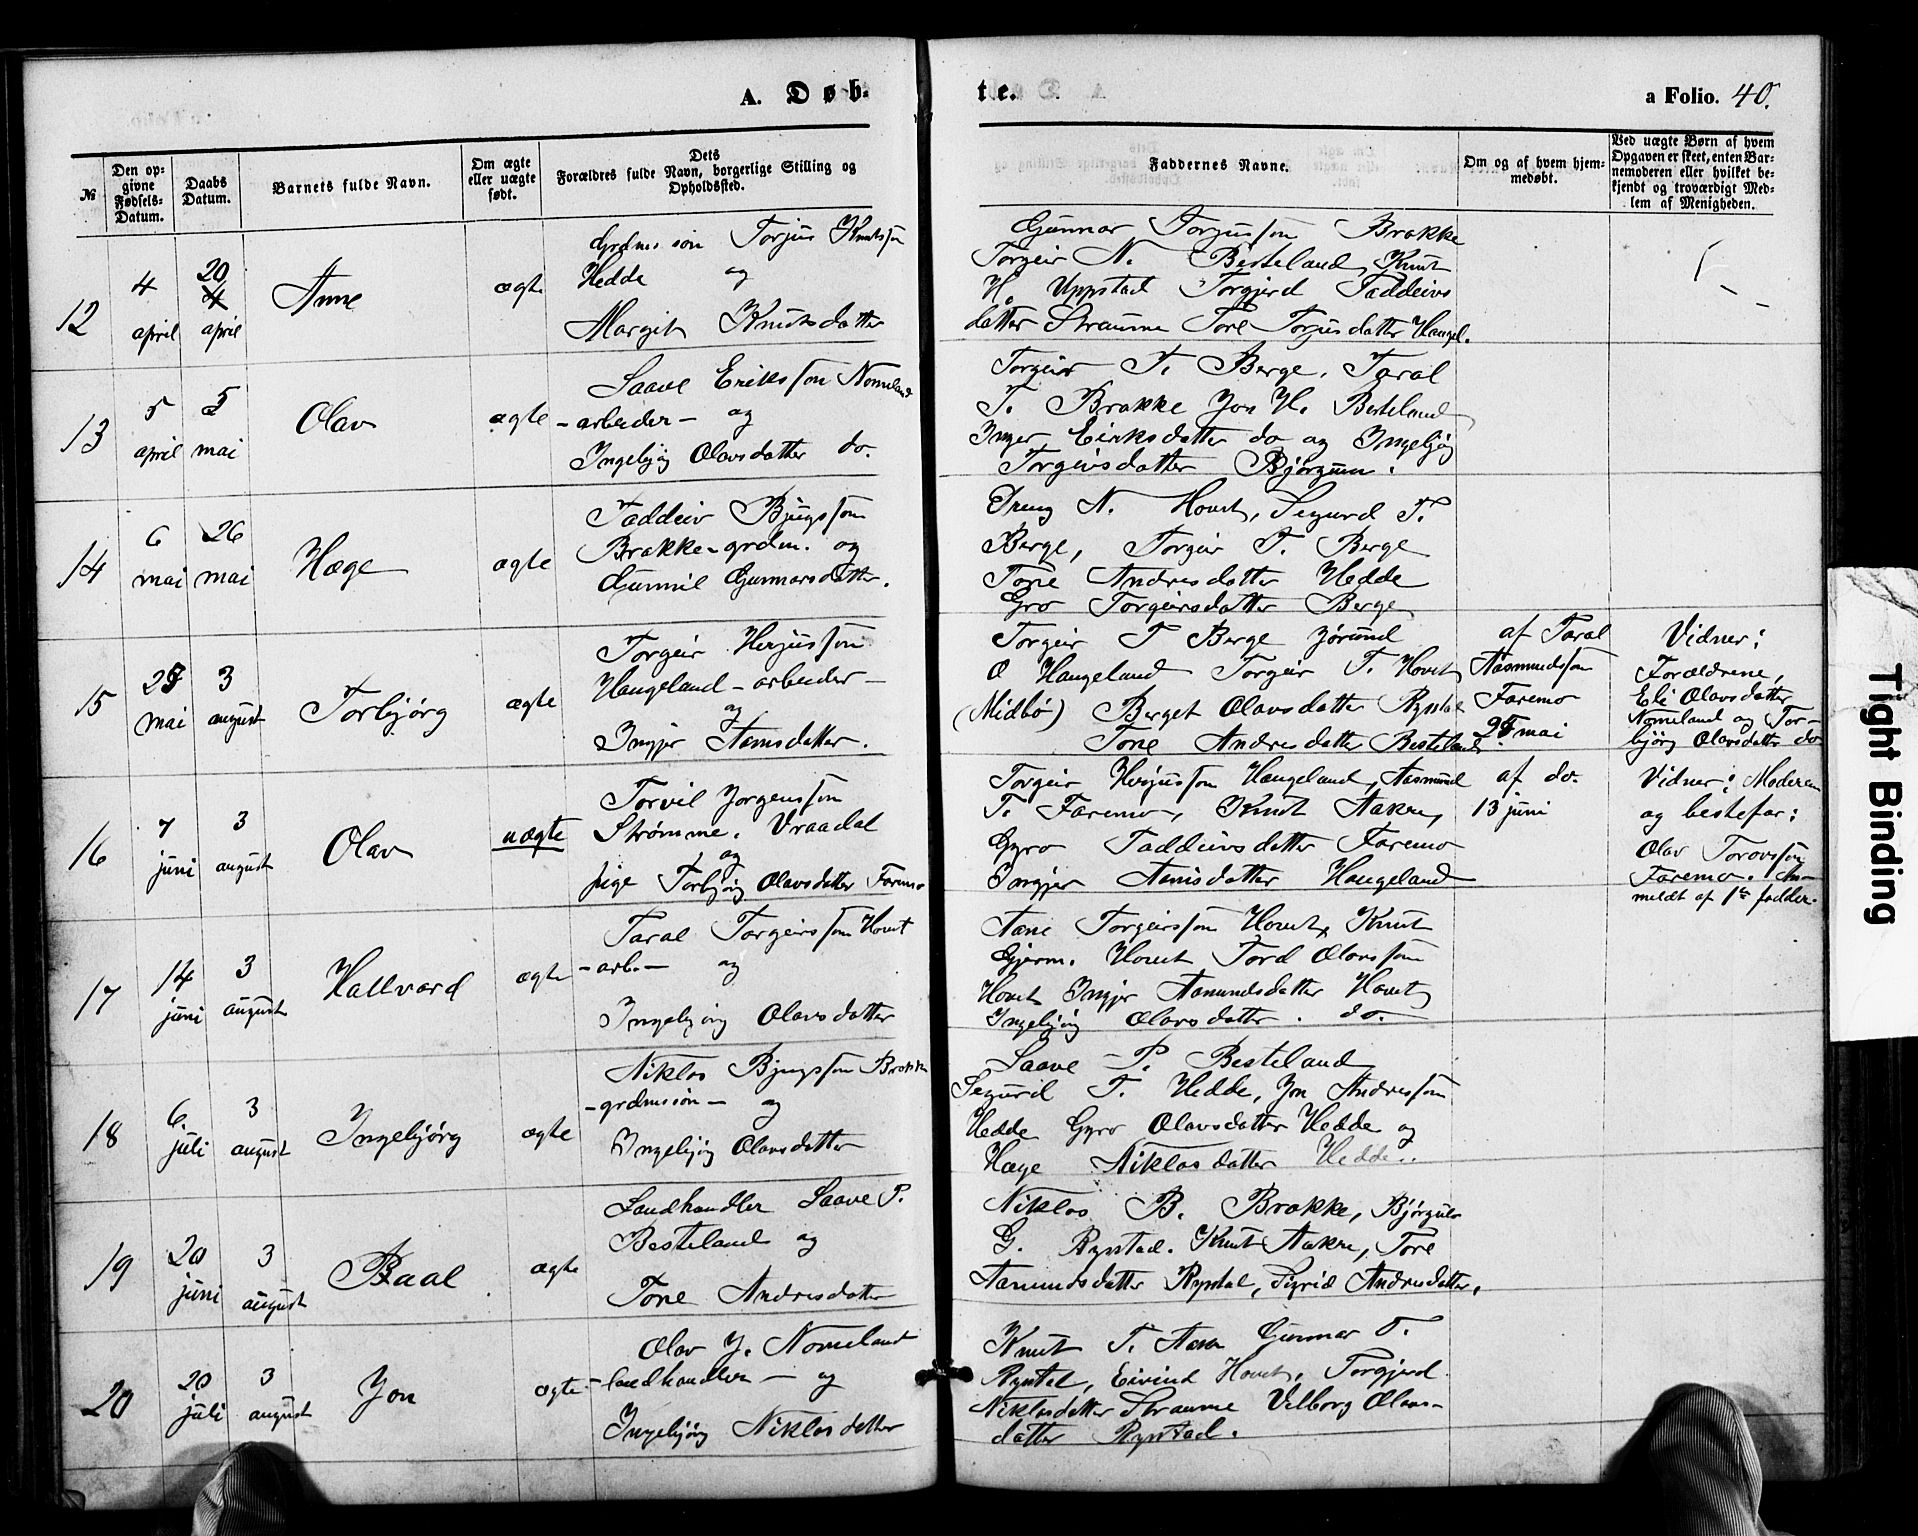 A. Døb-
te.
a Folio. 40.
№
Den opgivne Fødsels-Datum.
Daabs Datum.
Barnets fulde Navn.
Om ægte eller uægte født.
Dets Forældres fulde Navn, borgerlige Stilling og Opholdssted.
Faddernes Navne.
Om og af hvem hjemmedøbt.
Ved uægte Børn af hvem Opgaven er skeet, enten Barnemoderen eller hvilket bekjendt og troværdigt Medlem af Menigheden.
12
4 april
20 april
Anne
ægte
Grdm. søn Torjus Knutsson
Hedde og
Margit Knutsdatter
Gunnar Torjusson Brokke
Torgeir N. Besteland, Knut
H. Uppstad Torgjerd Taddeivs
datter Straume Tore Torjusdatter Haugel.
13
5 april
5 mai
Olav
ægte
Saave Eriksson Nomeland
- arbeider - og
Ingebjög Olavsdatter do.
Torgeir T. Berge, Taral
T. Brokke Jon H. Besteland
Inger Eiriksdatter do og Ingebjög
Torgeirsdatter Bjørgum.
14
6 mai
26 mai
Hæge
ægte
Taddeiv Bjugsson
Brokke - grdm. og
Gunnil Gunnarsdatter.
Dreng N. Hovet, Segurd T.
Berge, Torgeir T. Berge
Tone Andresdatter Hedde
Gro Torgeirsdatter Berge
15
25 mai
3 august
Torbjørg
ægte
Torgeir Herjusson
Haugeland - arbeider -
og
Ingjer Aanisdatter.
Torgeir T Berge Jørund
O Haugeland Torgeir T. Hovet
(Midbö) Berget Olavsdatter Rystad
Tone Andresdatter Besteland
af Taral
Aasmundsson
Faremo
25 mai
Vidner:
Forældrene,
Eli Olavsdatter
Nomeland og Tor-
björg Olavsdatter do
16
7 juni
3 august
Olav
uægte
Torvil Jorgensson
Strømme. Vraadal
og
pige Torbjög Olavsdatter Faremo
Torgeir Herjusson Haugeland, Aasmund
T. Faremo, Knut Aakre,
Gyro Taddeivsdatter Faremo
Ingjer Aanisdatter Haugeland
af do.
13 juni
Vidner: Moderen
og bestefar:
Olav Torovsson
Faremo. An-
meldt af 1te fadder.
17
14 juni
3 august
Hallvard
ægte
Taral Torgeirsson Hovet
- arb. - og
Ingebjörg Olavsdatter
Aani Torgeirsson Hovet, Knut
Gjerm. Hovet Tord Olavsson
Hovet Ingjer Aamundsdatter Hovet
Ingebjög Olavsdatter. do.
18
6. juli
3 august
Ingebjørg
ægte
Niklos Bjugsson Brokke
- grdmssön - og
Ingebjög Olavsdatter
Saave P. Besteland
Segurd T. Hedde, Jon Andresson
Hedde Gyro Olavsdatter Hedde og
Hæge Niklosdatter Hedde..
19
20 juni
3 august
Paal
ægte
Landhandler Saave P.
Besteland og
Tone Andresdatter
Niklos B. Brokke, Bjørgulv
G. Rystad. Knut Aakre, Tore
Aamundsdatter Rystad, Sigrid Andresdatter,
20
20 juli
3 august
Jon
ægte
Olav J. Nomeland
- landhandler - og
Ingebjörg Niklosdatter
Knut T. Gunnar O.
Rystad, Eivind Hovet, Torgjerd
Niklosdatter Straume Vilborg Olavs-
datter Rystad.
Tight Binding